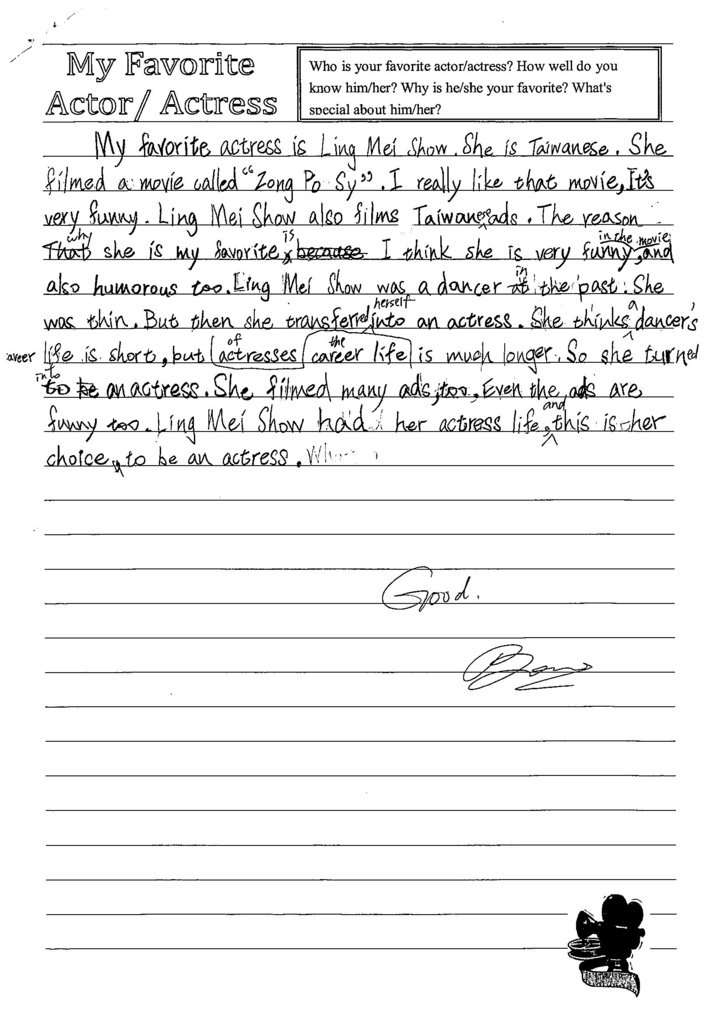 My Favorite
Actor/ Actress
Who is your favorite actor/actress? How well do you
know him/her? Why is he/she your favorite? What's
special about him/her?
My favorite actress is Ling Mei Show. She is Taiwanese. She
filmed a movie called "Zong Po Sy". I really like that movie, It's
very funny. Ling Mei Show also films Taiwanese ads. The reason
why is in the movie
That she is my favorite because I think she is very funny, and
also humorous too. Ling Mei Show was a dancer at the past. She
in
herself a
was thin. But then she transferred into an actress. She thinks dancer's
of the
career life is short, but actresses career life is much longer. So she turned
into
to be an actress. She filmed many ads, too, Even the ads are
and
funny too. Ling Mei Show had her actress life, this is her
choice, to be an actress.
Good.